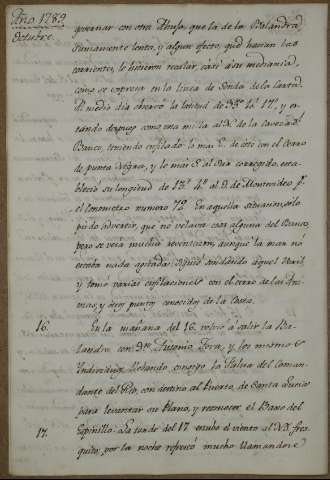 Año 1789
Octubre.
governar con otra Ahuja que la de la Balandra
sumamente lenta, y algun efecto, que hacian las
corrientes, le hicieron recalar, casi à las mediania,
como se expresa en la linea de Sonda de la Carta.
Al medio dia observó la latitud de 35° 4' 17", y es-
tando despues como una milla al N. de la Caveza del
Banco, teniendo enfilado lo mas E. de este con el Cerro
de punta Negra, y lo mas S. al corregido, esta-
bleció su longitud de 1° 4' al O. de Montevideo pr.
el Cronometro numero 72. En aquella situacion, solo
pudo advertir, que no velaba cosa alguna del Banco,
pero se veia mucha reventazon, aunque la mar no
estaba nada agitada. Siguió sondando aquel
y tomó varias enfilaciones con el cerro de las Ani-
mas, y otros puntos conocidos de la Costa.
16. En la mañana del 16. volvió à salir la Ba-
landra con Dn. Antonio Tova, y los mismos
Individuos, llevando consigo la Falua del Coman-
dante del Rio, con destino al Puerto, de Santa Lucia
para levantar su Plano, y reconocer, el Banco del
Espinillo. La tarde del 17. estubo el viento al fres-
17. quito; por la noche refrescó mucho llamandose